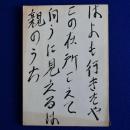 はよも行きたや
この在所こえて
向うに見えるは
親のうち